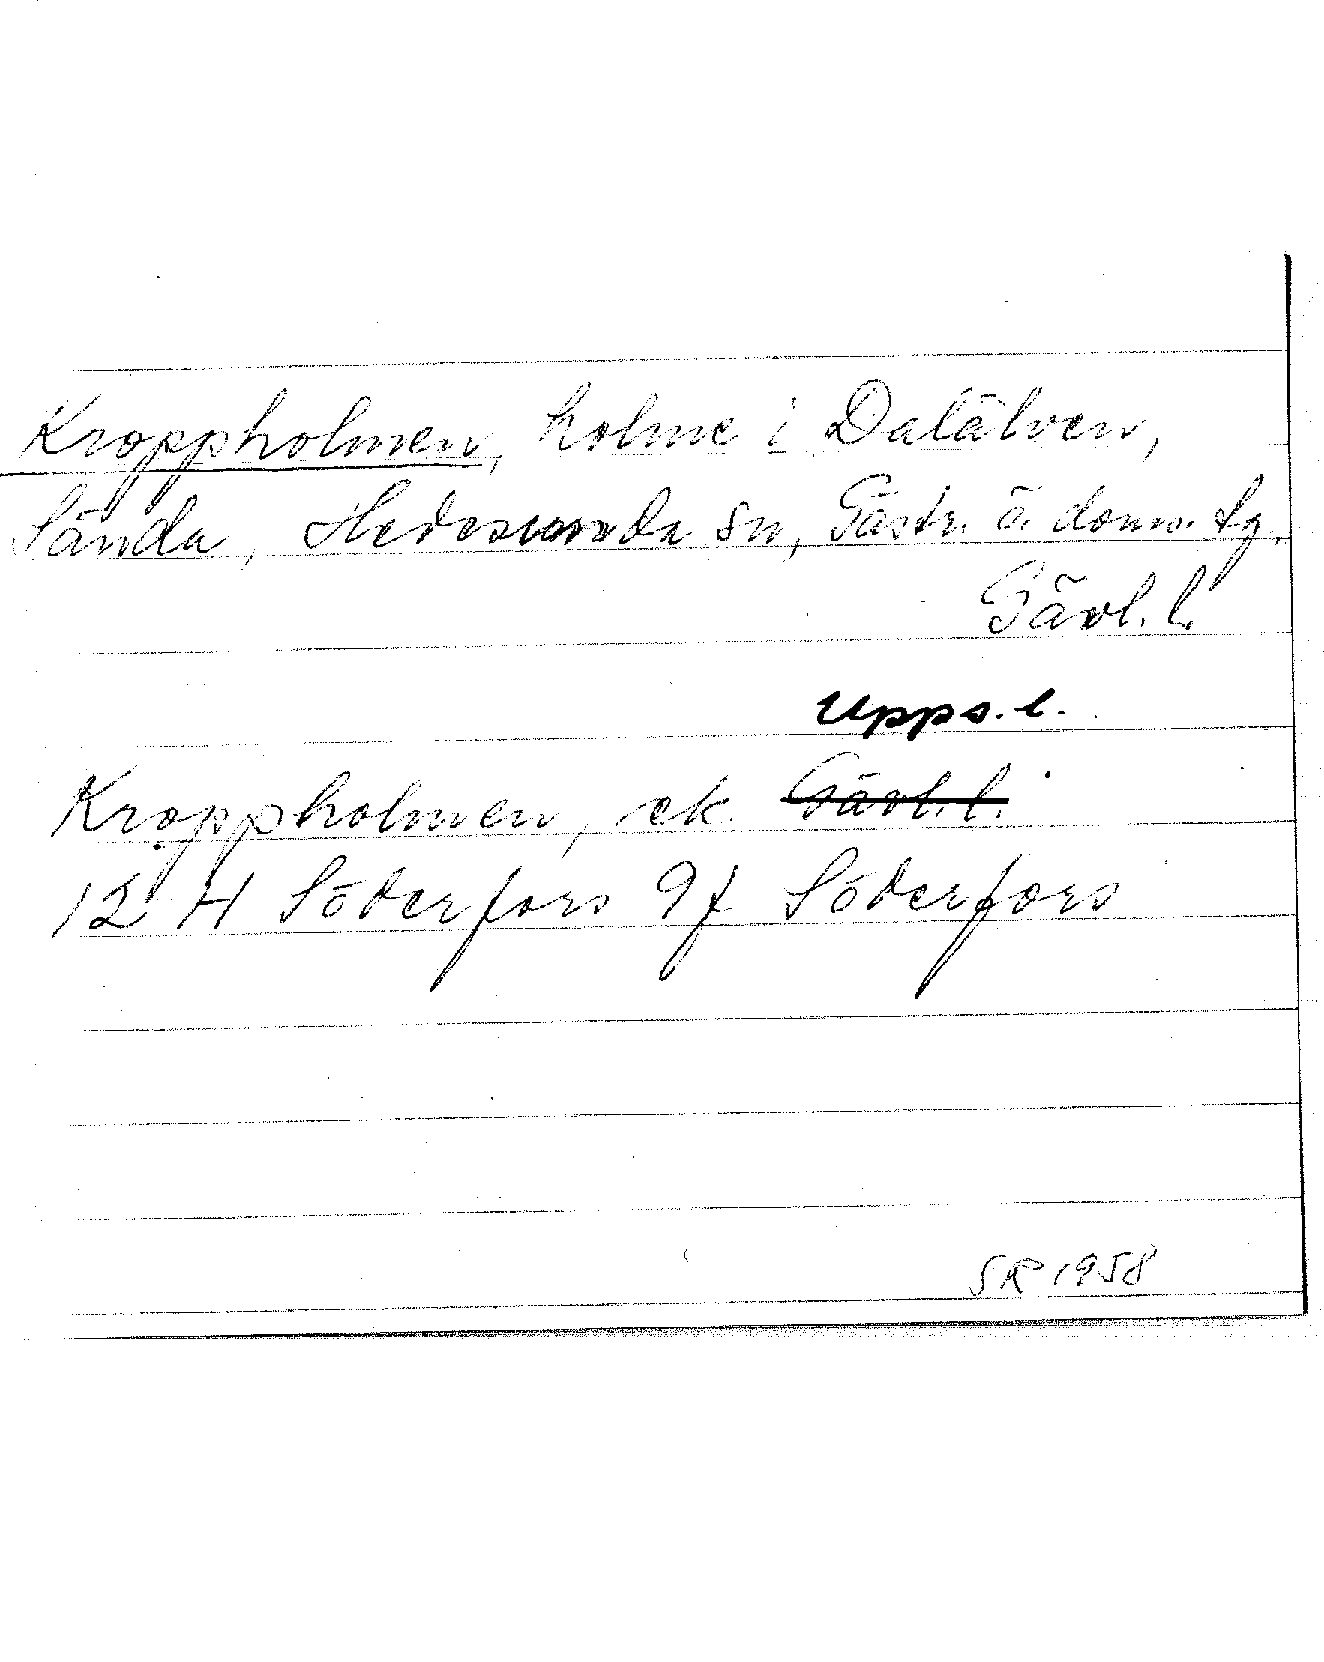 Kroppholmen, holme i Dalälven,
Sända, Hedesunda sn, Gästr. ö. doms. tg.
Gävl. l.
Upps. l.
Kroppholmen, ek. Gävl. l.
12 H Söderfors 9f Söderfors
SR 1958